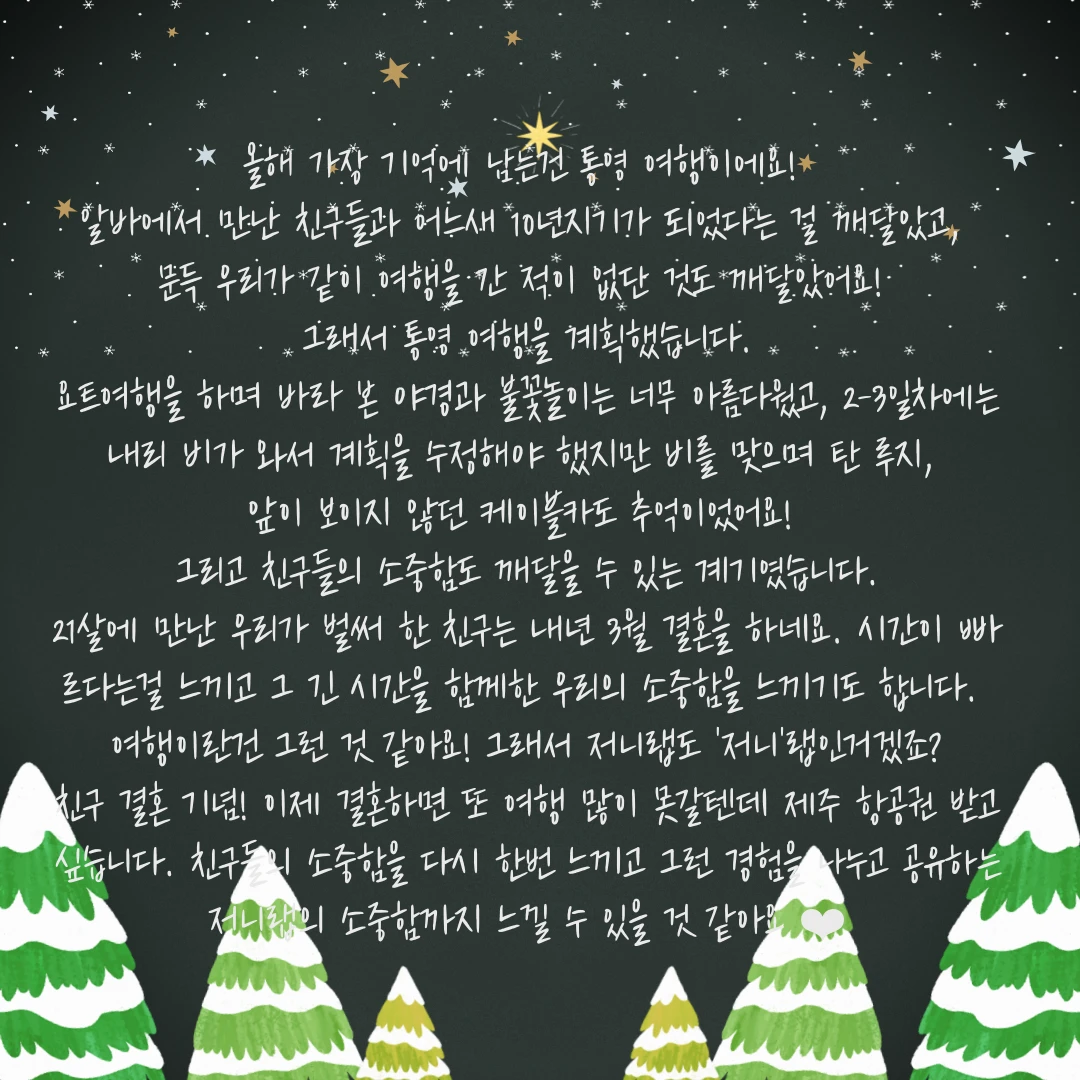 올해 가장 기억에 남는건 통영 여행이에요!
알바에서 만난 친구들과 어느새 10년지기가 되었다는 걸 깨달았고,
문득 우리가 같이 여행을 간 적이 없단 것도 깨달았어요!
그래서 통영 여행을 계획했습니다.
요트여행을 하며 바라 본 야경과 불꽃놀이는 너무 아름다웠고, 2-3일차에는
내리 비가 와서 계획을 수정해야 했지만 비를 맞으며 탄 루지,
앞이 보이지 않던 케이블카도 추억이었어요!
그리고 친구들의 소중함도 깨달을 수 있는 계기였습니다.
21살에 만난 우리가 벌써 한 친구는 내년 3월 결혼을 하네요. 시간이 빠
르다는걸 느끼고 그 긴 시간을 함께한 우리의 소중함을 느끼기도 합니다.
여행이란건 그런 것 같아요! 그래서 저니랩도 '저니'랩인거겠죠?
친구 결혼 기념! 이제 결혼하면 또 여행 많이 못갈텐데 제주 항공권 받고
싶습니다. 친구들의 소중함을 다시 한번 느끼고 그런 경험을 나누고 공유하는
저니랩의 소중함까지 느낄 수 있을 것 같아요